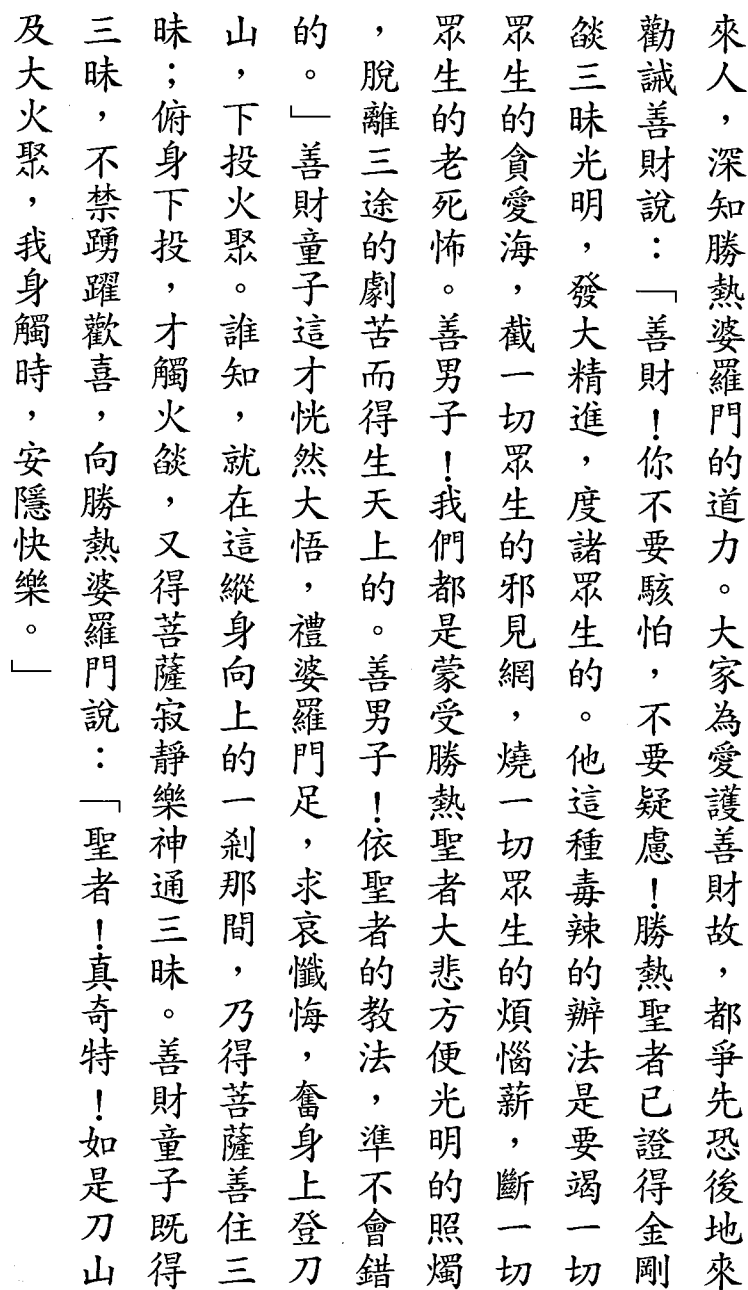 來人，深知勝熱婆羅門的道力。大家為愛護善財故，都爭先恐後地來
勸誡善財說：「善財！你不要駭怕，不要疑慮！勝熱聖者已證得金剛
燄三昧光明，發大精進，度諸眾生的。他這種毒辣的辦法是要竭一切
眾生的貪愛海，截一切眾生的邪見網，燒一切眾生的煩惱薪，斷一切
眾生的老死怖。善男子！我們都是蒙受勝熱聖者大悲方便光明的照燭
，脫離三途的劇苦而得生天上的。善男子！依聖者的教法，準不會錯
的。」善財童子這才恍然大悟，禮婆羅門足，求哀懺悔，奮身上登刀
山，下投火聚。誰知，就在這縱身向上的一剎那間，乃得菩薩善住三
昧；俯身下投，才觸火燄，又得菩薩寂靜樂神通三昧。善財童子既得
三昧，不禁踴躍歡喜，向勝熱婆羅門說：「聖者！真奇特！如是刀山
及大火聚，我身觸時，安隱快樂。」